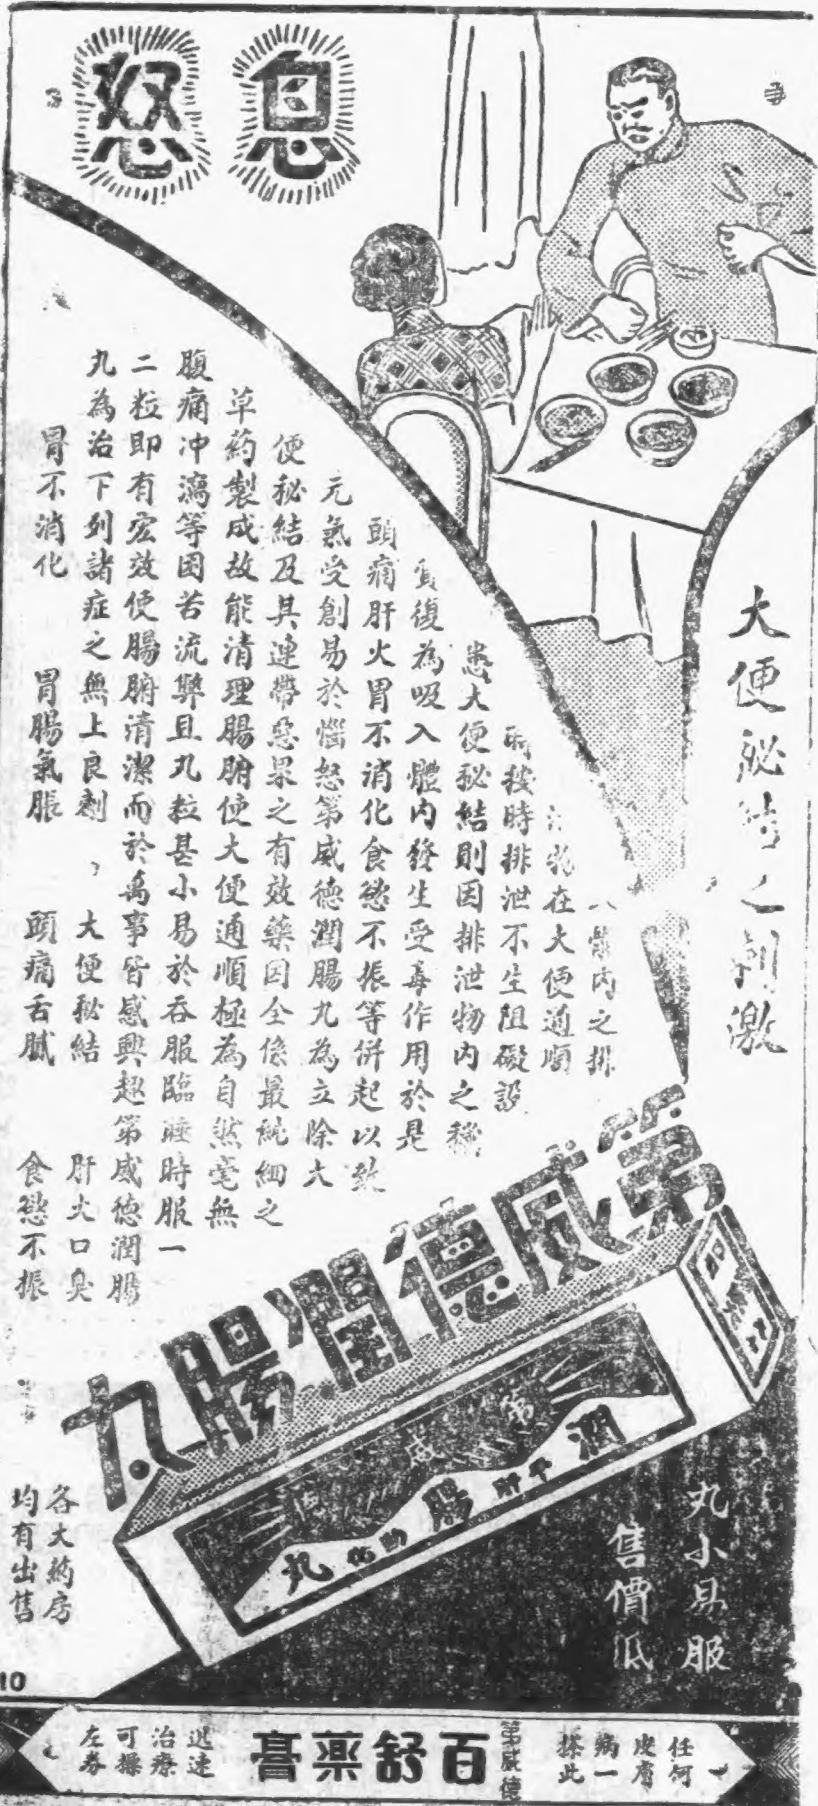 息怒
大便秘結之刺激
人體內之排
在大便通順
時按時排泄不生阻礙設
患大便秘結則因排泄物內之穢
質復為吸入體內發生受毒作用於是
頭痛肝火胃不消化食慾不振等併起以致
元氣受創易於惱怒第威德潤腸丸為立除大
便秘結及其連帶惡果之有效藥因全係最純細之
草藥製成故能清理腸腑使大便通順極為自然毫無
腹痛冲瀉等困苦流弊且丸粒甚小易於吞服臨睡時服一
二粒即有宏效使腸腑清潔而於萬事皆感興趣第威德潤腸
丸為治下列諸症之無上良劑，大便秘結 肝火口臭
胃不消化 胃腸氣脹 頭痛舌膩 食慾不振
第威德潤腸丸
第威
潤
平肝
腸
助化
丸
丸小易服
售價低
各大藥房
均有出售
10
任何
皮膚
病一
搽此
第威德
百舒藥膏
迅速
治療
可操
左券